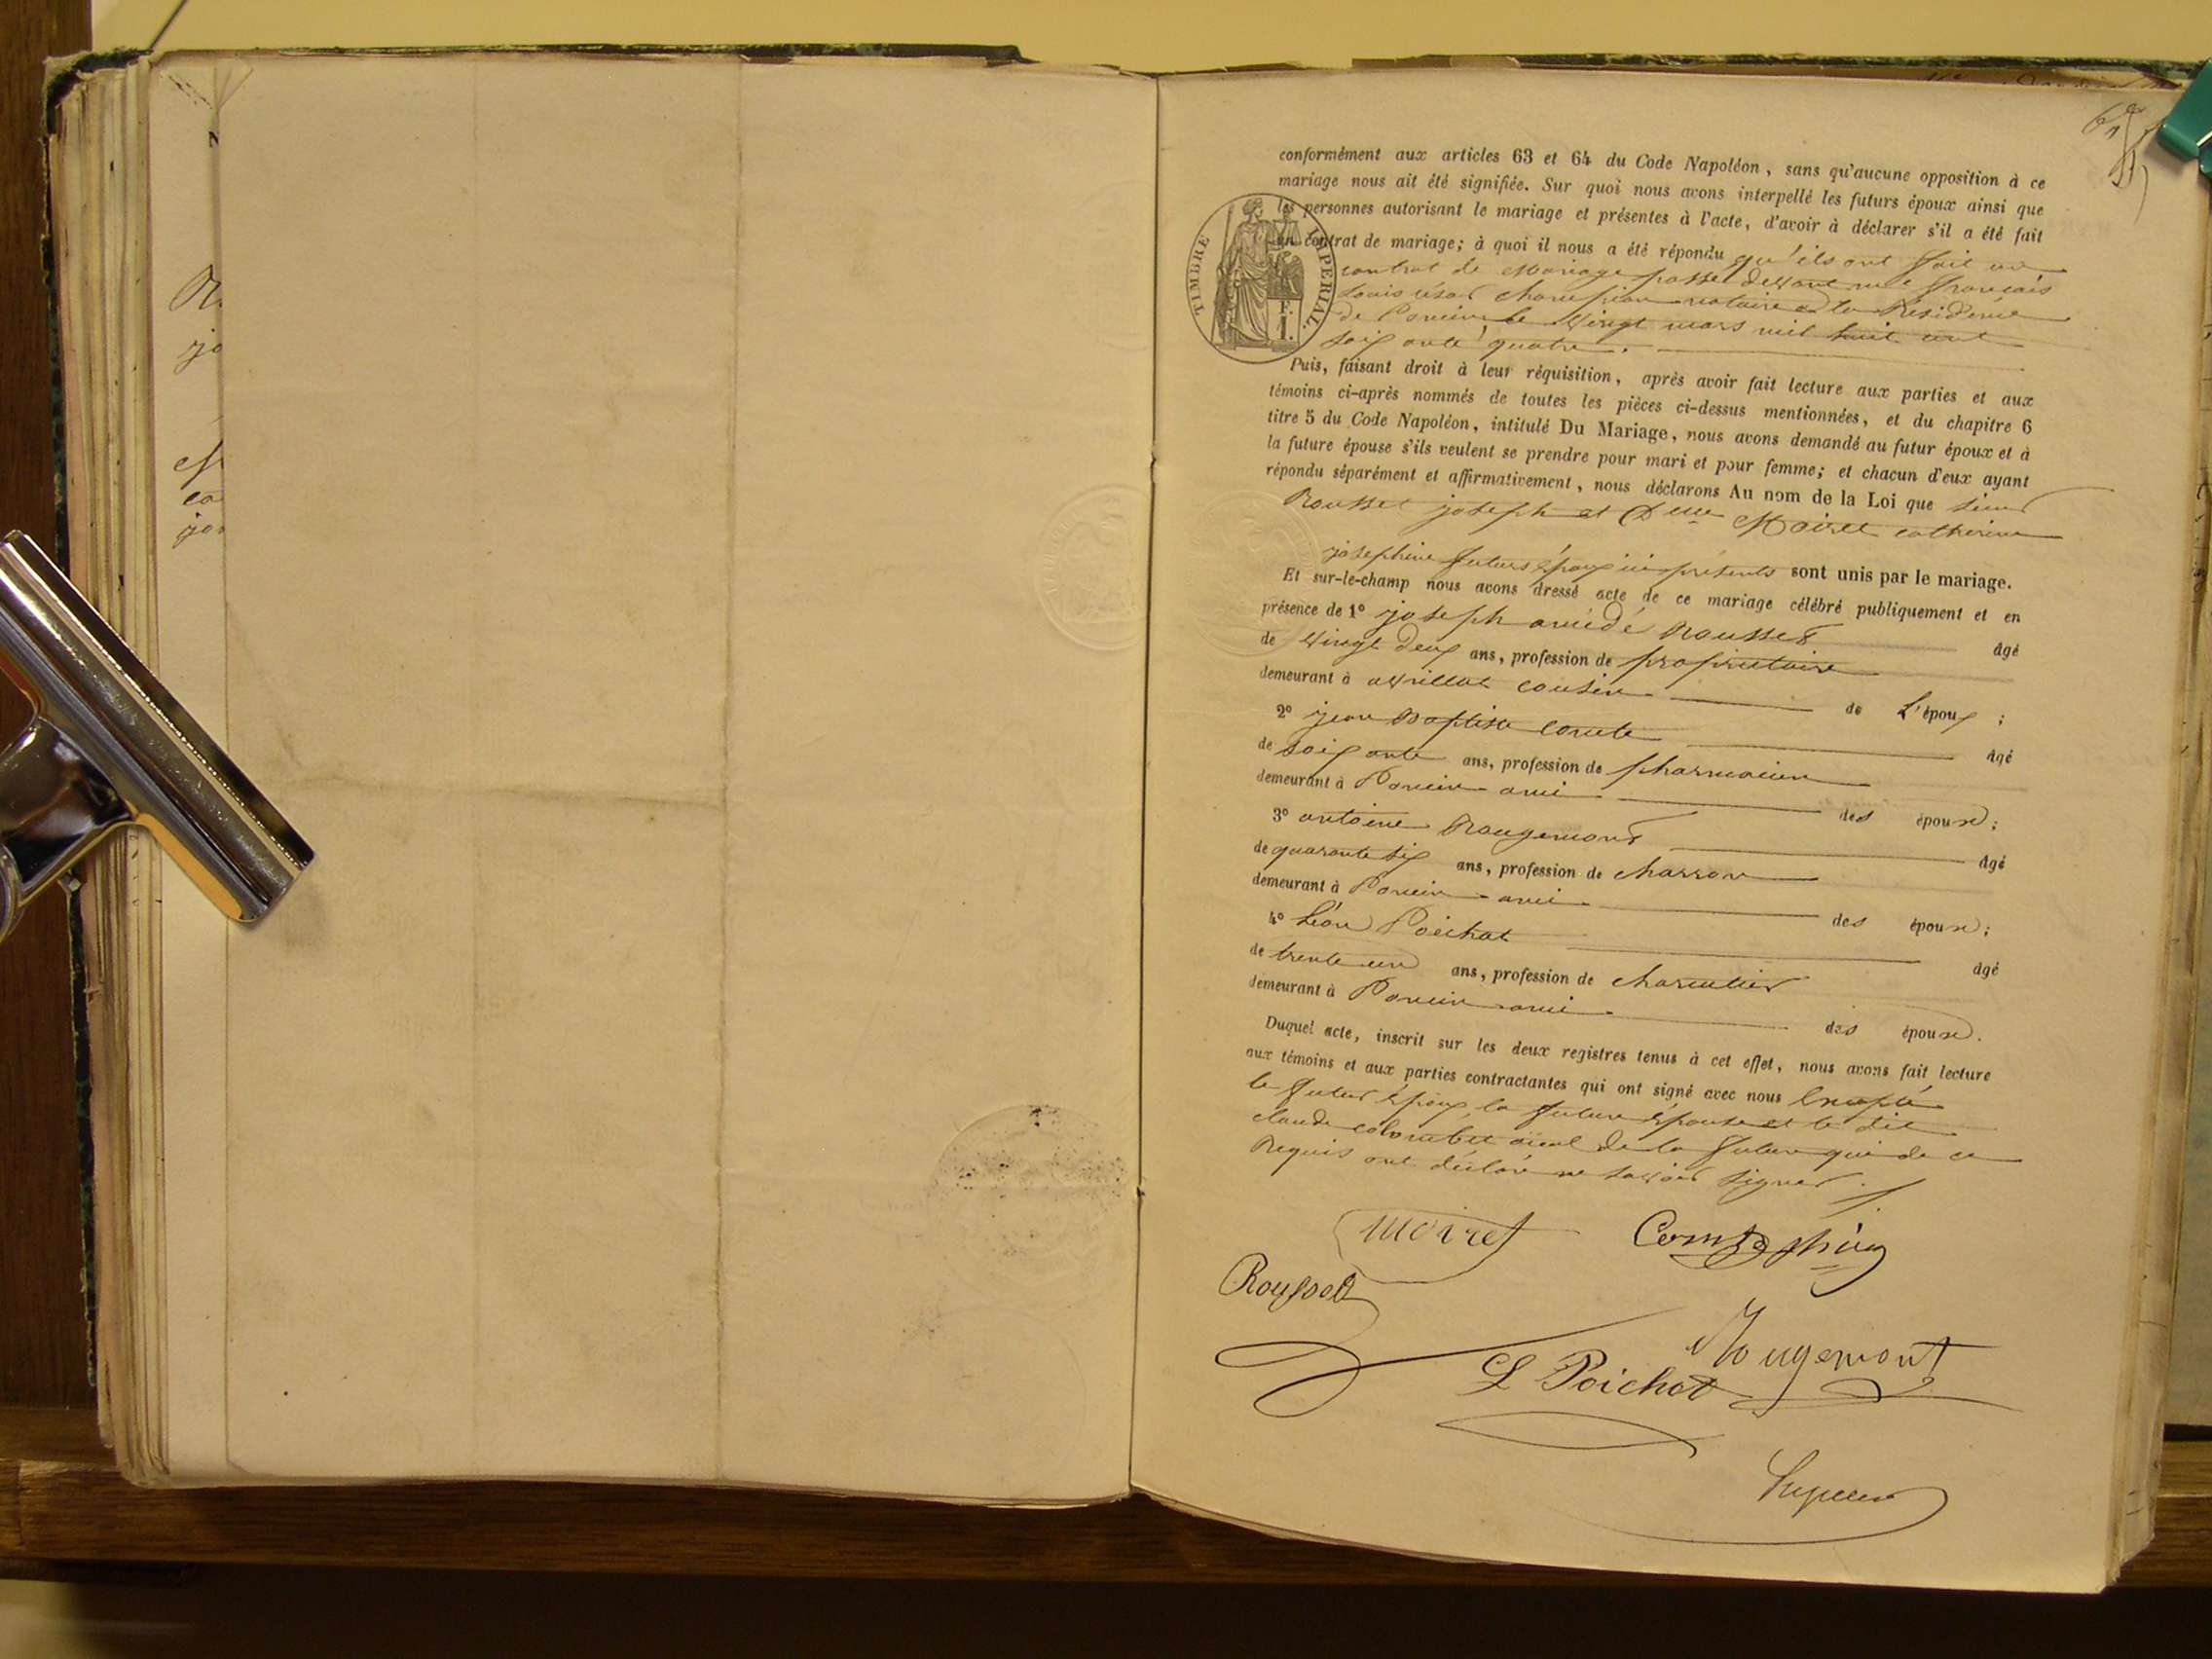 conformément aux articles 63 et 64 du Code Napoléon, sans qu'aucune opposition à ce
mariage nous ait été signifiée. Sur quoi nous avons interpellé les futurs époux ainsi que
les personnes autorisant le mariage et présentes à l'acte, d'avoir à déclarer s'il a été fait
un contrat de mariage; à quoi il nous a été répondu qu'ils ont fait un
contrat de Mariage passé devant me françois
Louis César Champion notaire à la Résidence
de Poncin le vingt mars mil huit cent
soixante quatre.
TIMBRE IMPERIAL.
E. F. I.
Puis, faisant droit à leur réquisition, après avoir fait lecture aux parties et aux
témoins ci-après nommés de toutes les pièces ci-dessus mentionnées, et du chapitre 6
titre 5 du Code Napoléon, intitulé Du Mariage, nous avons demandé au futur époux et à
la future épouse s'ils veulent se prendre pour mari et pour femme; et chacun d'eux ayant
répondu séparément et affirmativement, nous déclarons Au nom de la Loi que sieur
Rousset joseph et Delle Moiret catherine
josephine futurs époux ici présents sont unis par le mariage.
Et sur-le-champ nous avons dressé acte de ce mariage célébré publiquement et en
présence de 1° joseph amédé Rousset âgé
de vingt deux ans, profession de propriétaire
demeurant à cousin de L'époux;
2° jean Baptiste Comte âgé
de soixante ans, profession de pharmacien
demeurant à Poncin ami des époux;
3° antoine Rougemont âgé
de quarante six ans, profession de charron
demeurant à Poncin ami des époux;
4° Léon Poichat âgé
de trente un ans, profession de charcutier
demeurant à Poncin ami des époux.
Duquel acte, inscrit sur les deux registres tenus à cet effet, nous avons fait lecture
aux témoins et aux parties contractantes qui ont signé avec nous Excepté
le futur époux, la future épouse et le dit
claude colombet aïeul de la future qui de ce
Requis ont déclaré ne savoir signer.
moiret
Comte phien
Rousset
Rougemont
L Poichat